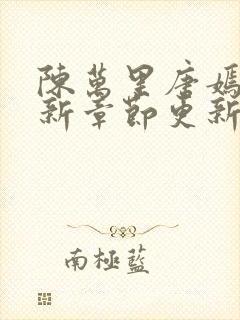 陳萬里唐嫣
新章節更新
南極藍